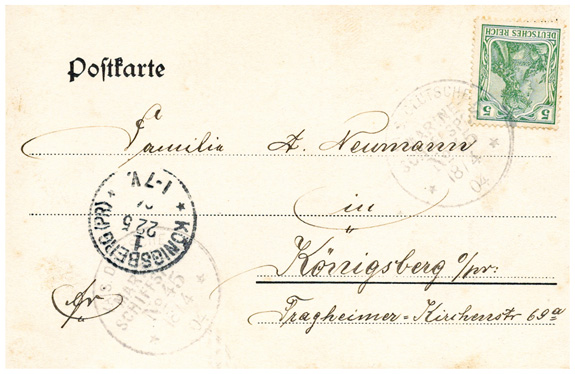 Postkarte
DEUTSCHES REICH
5 5
Familie A. Neumann
in
Königsberg o/pr:
Tragheimer-Kirchenstr 69a
KÖNIGSBERG (PR)
1
22 5
1-7V.
DEUTSCHE
SCHIFFSPOST
18/4
04
SCHIFFSPOST
No 45
18/4
04